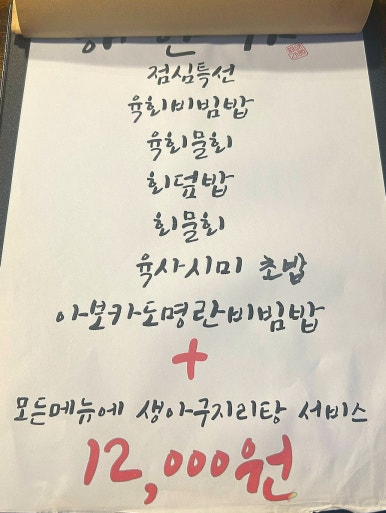 점심특선
육회비빔밥
육회물회
회덮밥
회물회
육사시미 초밥
아보카도명란비빔밥
+
모든메뉴에 생아구지리탕 서비스
12,000원